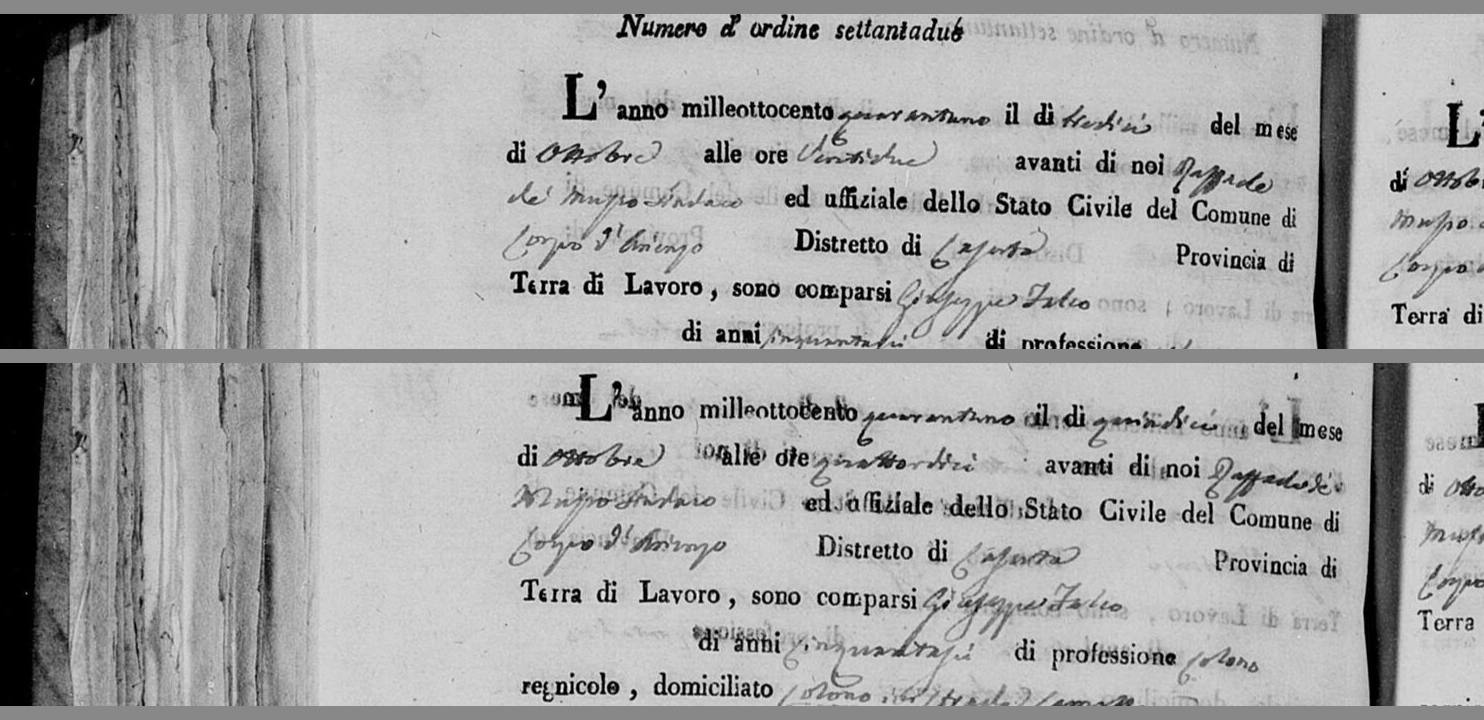 Numero d' ordine settantadue
L' anno milleottocento quarantuno il dì tredici del mese
di Ottobre alle ore Ventidue avanti di noi Raffaele
de' Musso Sindaco ed uffiziale dello Stato Civile del Comune di
Corpo d'Arienzo Distretto di Caserta Provincia di
Terra di Lavoro, sono comparsi Giuseppe Falco
di anni cinquantasei di professione
L' anno milleottocento quarantuno il dì quindici del mese
di Ottobre alle ore quattordici avanti di noi Raffaele de'
Musso Sindaco ed uffiziale dello Stato Civile del Comune di
Corpo d'Arienzo Distretto di Caserta Provincia di
Terra di Lavoro, sono comparsi Giuseppe Falco
di anni cinquantasei di professione colono
regnicolo, domiciliato